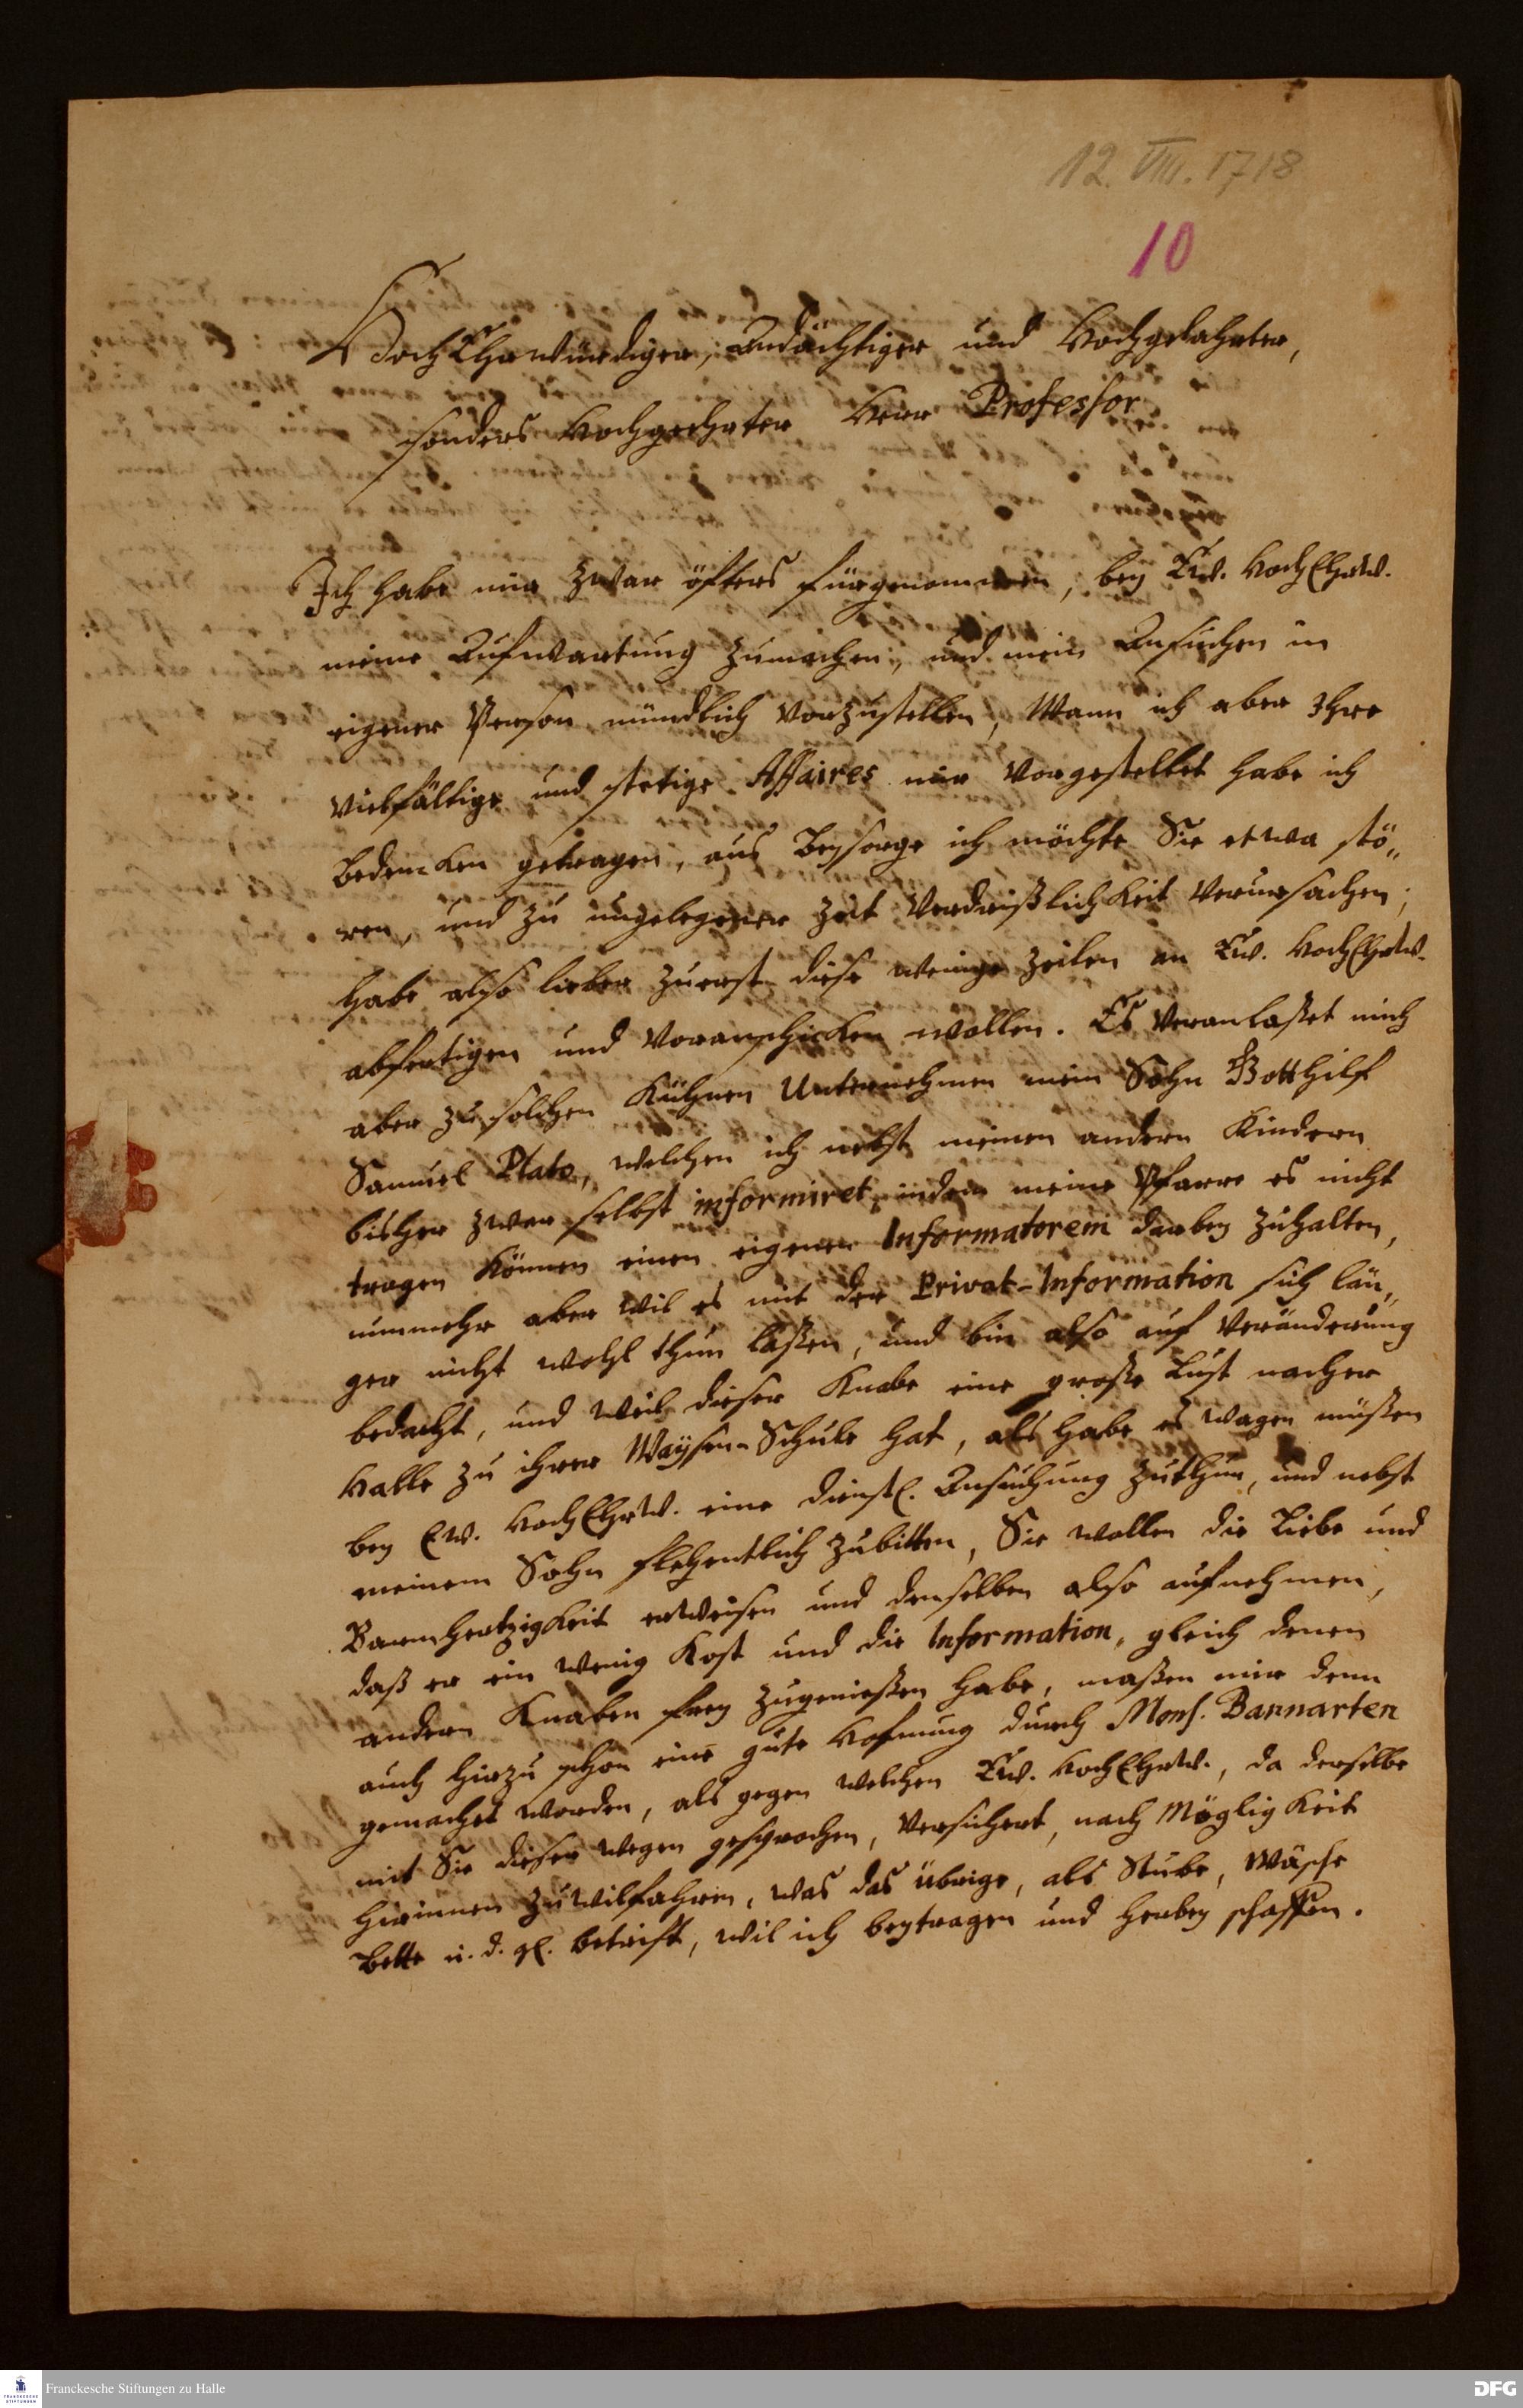 12. VIII. 1718
10
HochEhrwürdiger, Andächtiger und Hochgelahrter,
sonders Hochgeehrter Herr Professor
Ich habe mir zwar öfters fürgenommen, bey Ew. HochEhrw.
meine Aufwartung zumachen, und mein Ansuchen in
eigener Person mündlich vorzustellen, Wann ich aber Ihre
vielfältige und stetige Affaires mir vorgestellet habe ich
bedencken getragen, aus Beysorge ich möchte Sie etwa stö„
ren, und zu ungelegener Zeit Verdrißlichkeit verursachen;
habe also lieber zuerst diese wenige Zeilen an Ew. HochEhrw.
abfertigen und voranschicken wollen. Es veranlaßet mich
aber zu solchen Kühnen Unternehmen mein Sohn Gotthilf
Samuel Plato, welchen ich nebst meinen andern Kindern
bisher zwar selbst informiret, indem meine Pfarre es nicht
tragen können einen eigenen Informatorem darbey zuhalten,
nunmehr aber wil es mit der Privat-Information sich län„
ger nicht wohl thun laßen, und bin also auf Veränderung
bedacht, und weil dieser Knabe eine große Lust nacher
Halle zu ihrer Waysen-Schule hat, als habe es wagen müßen
bey Ew. HochEhrW. eine dienstl. Ansuchung zuthun, und nebst
meinem Sohn flehentlich zubitten, Sie wollen die Liebe und
Barmhertzigkeit erweisen und denselben also aufnehmen,
daß er ein wenig Kost und die Information, gleich denen
andern Knaben frey zugenießen habe, maßen mir denn
auch hierzu schon eine gute Hofnung durch Mons. Bannarten
gemachet worden, als gegen welchen Ew. HochEhrw., da derselbe
mit Sie dieser wegen gesprochen, versichert, nach Mögligkeit
hierinnen zuwilfahren, was das übrige, als Stube, Wäsche
Bette u. d. gl. betrift, wil ich beytragen und herbey schaffen.
Franckesche Stiftungen zu Halle
DFG